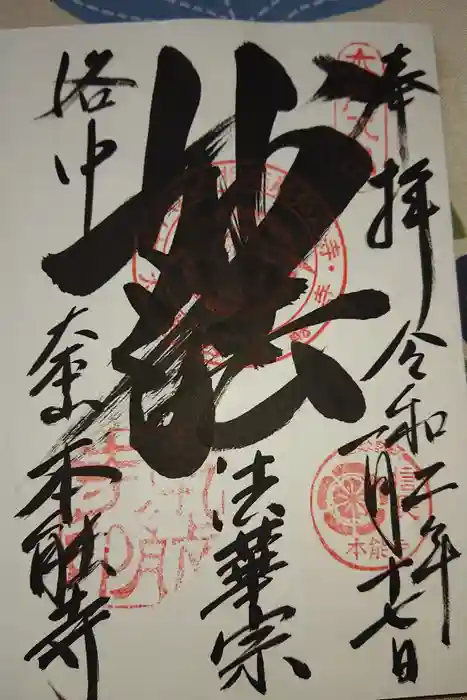 奉拝 令和二年一月十七日
妙法
法華宗
洛中 大本山 本能寺
本能寺